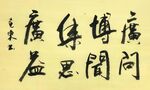 廣問
博聞
集思
廣益